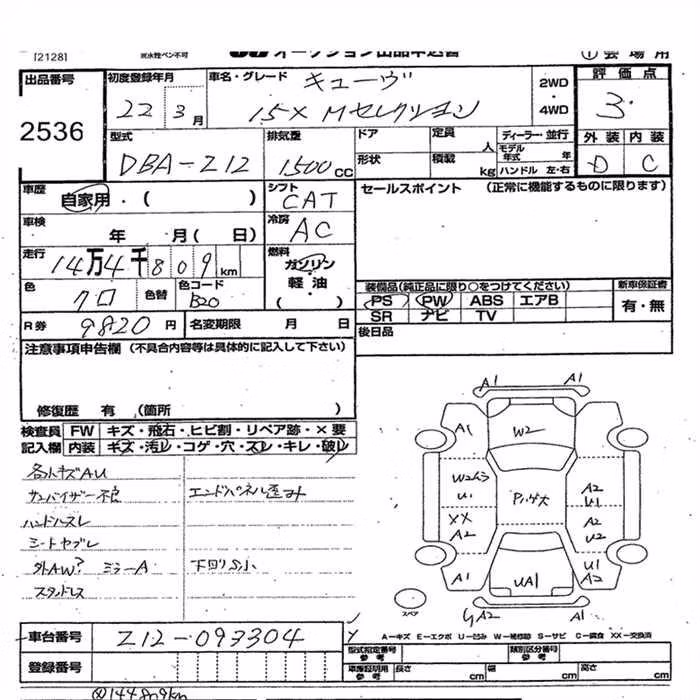 [2128] 感水性ペン不可 オークション出品申込書 ① 会場用
出品番号 初度登録年月 車名・グレード キューヴ 2WD・4WD 評価点
2536 22年3月 15X Mセレクション 3
型式 排気量 ドア 定員 人 ディーラー・並行 外装 内装
DBA-Z12 1500cc 形状 積載 kg モデル年式 年 ハンドル 左・右 D C
車歴 自家用・( ) シフト CAT セールスポイント (正常に機能するものに限ります)
車検 年 月( 日) 冷房 AC
走行 14万4千809km 燃料 ガソリン・軽油・( )
色 クロ 色替 色コード B20 装備品(純正品に限り○をつけてください) 新車保証書
PS PW ABS エアB 有・無
R券 9820円 名変期限 月 日 SR ナビ TV
後日品
注意事項申告欄 (不具合内容等は具体的に記入して下さい)
修復歴 有 (箇所 )
検査員 FW キズ・飛石・ヒビ割・リペア跡・×要
記入欄 内装 キズ・汚レ・コゲ・穴・スレ・キレ・破レ
各小キズAU
サンバイザー不良 エンドパネル歪み
ハンドルスレ
シートヤブレ
外AW? ミラーA 下回りS小
スタッドレス
A1 A1
A1 W2
W2ムラ U1 A2 U1
XX A2 A2 U2
A1 UA1 U1 A2
スペア A2 A1
A-キズ E-エクボ U-凹み W-補修跡 S-サビ C-腐食 XX-交換済
車台番号 Z12-093304 型式指定番号 参考 類別区分番号 参考
登録番号 車庫証明用 参考 長さ cm 幅 cm 高さ cm
@144809km